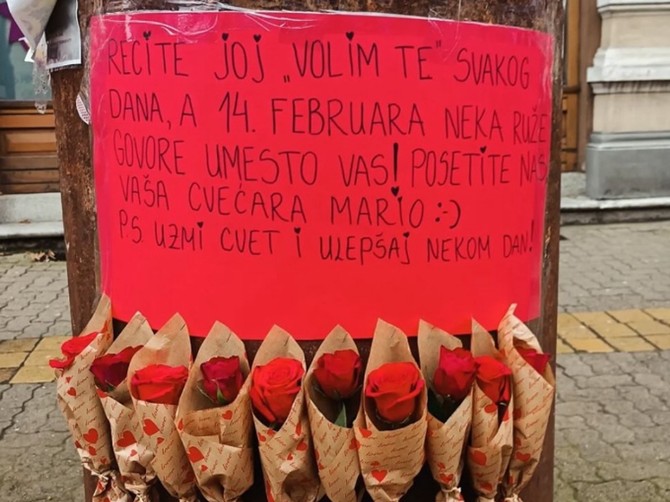 RECITE JOJ „VOLIM TE“ SVAKOG
DANA, A 14. FEBRUARA NEKA RUŽE
GOVORE UMESTO VAS! POSETITE NAS
VAŠA CVEĆARA MARIO :-)
P.S. UZMI CVET I ULEPŠAJ NEKOM DAN!